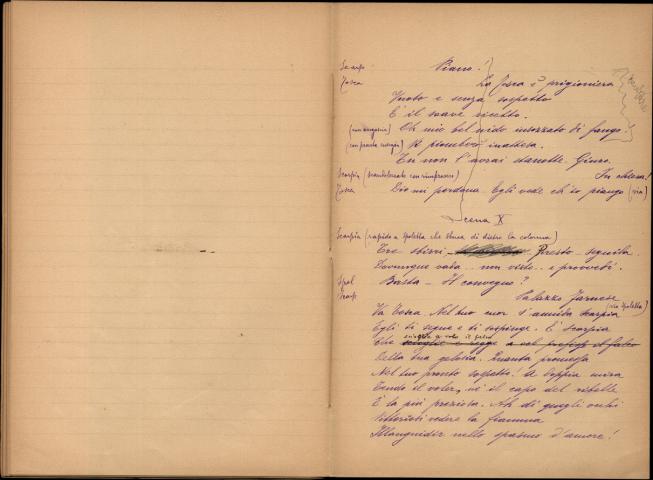 Scarp. Piano!
Tosca La Tosca è prigioniera
Vuoto e senza sospetto
È il soave ricetto.
Oh mio bel nido insozzato di fango!
Vi piomberò inattesa.
Tu non l'avrai stanotte. Giuro.
Scarpia In chiesa!
Tosca Dio mi perdona. Egli vede ch'io piango (via)
Scena X
Scarpia (rapido a Spoletta che sbuca di dietro la colonna)
Tre sbirri Presto - seguila
Dovunque vada.. non visto.. e provvedi.
Spol Basta - Il convegno?
Scarp Palazzo Farnese (via Spoletta)
Va Tosca. Nel tuo cuor s'annida Scarpia
Egli ti segue e ti sospinge. È Scarpia
Che scioglie a volo il falco
Della tua gelosia. Quanta promessa
Nel tuo pronto sospetto! A doppia mira
Tendo il voler, nè il capo del ribelle
È la più preziosa. Ah di quegli occhi
Vittoriosi vedere la fiamma
Illanguidir nello spasmo d'amore!